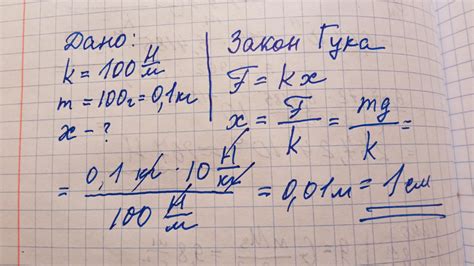 Дано:
k = 100 Н/м
m = 100г = 0,1 кг
x - ?
Закон Гука
F = kx
x = F/k = mg/k =
= (0,1 кг · 10 Н/кг)/(100 Н/м) = 0,01 м = 1 см